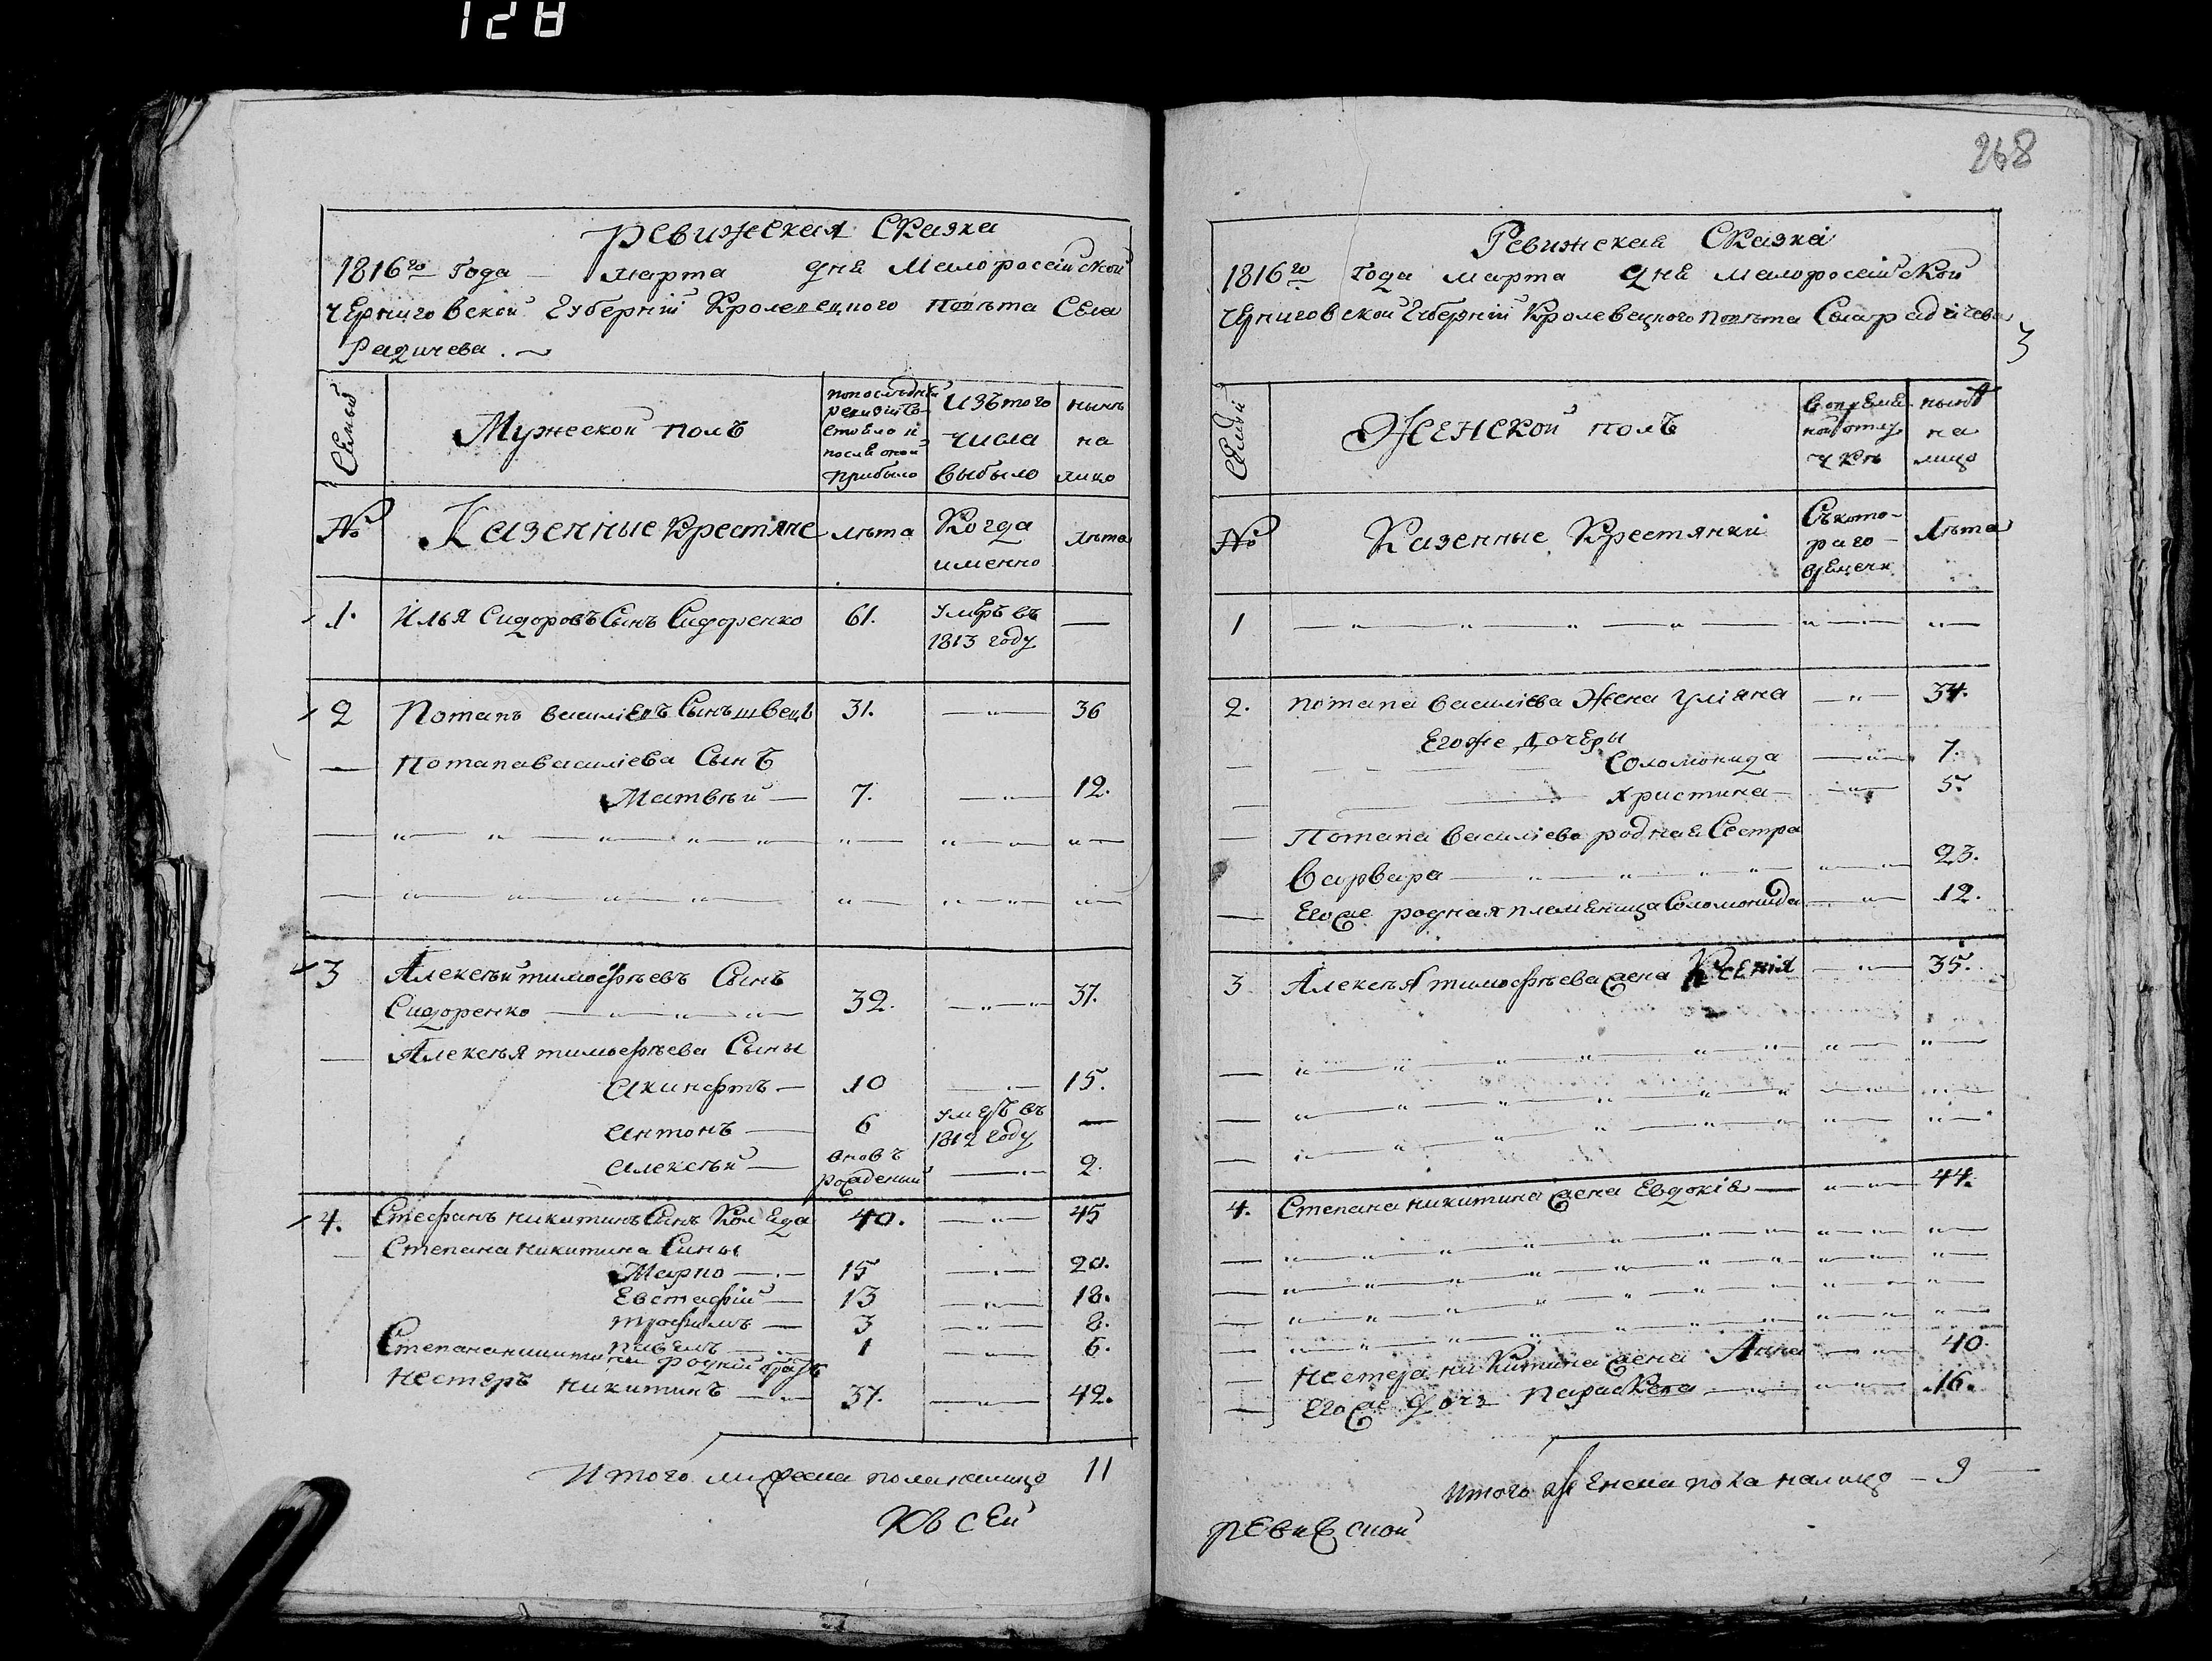 128
Ревижская Сказка
1816го Года — марта дня Малоросейской
Черниговской Губерний Кролевецкого повѣта Села
Радичева.
Семьи
Мужеской полъ
попослѣдней ревизій Состояло и после оной прибыло
Изътого числа выбыло
нынѣ на лицо
№
Казенные крестяне
лѣта
Когда именно
лѣта
1. Илья Сидоровъ Сынъ Сидоренко 61. умеръ въ 1813 году —
2 Потапъ василіевъ Сынъ швець 31. — 36
Потапа василіева Сынъ
Матвѣй — 7. — 12.
3 Алексѣй тимофѣевъ Сынъ
Сидоренко 32. — 37.
Алексѣя тимофѣева Сыны
Акинфтъ — 10 — 15.
Антонъ — 6 умеръ въ 1812 году —
Алексѣй — вновъ рожденій — 2.
4. Стефанъ никитинъ Сынъ Коледа 40. — 45
Степана никитина Сины
Марко — 15 — 20.
Евстафій — 13 — 18.
трофимъ — 3 — 8.
павелъ — 1 — 6.
Степана никитина родній братъ
Нестеръ никитинъ — 37. — 42.
Итого мужеска пола налицо 11
Къ сей
268
Ревижская Сказка
1816го Года марта дня малоросейской
Черниговской Губерній Кролевецкого повѣта Села радічева
3
Семьи
Женской полъ
Вовремянной отлучкѣ
нынѣ на лицо
№
Казенные Крестянки
Съкотораго времени
Лѣта
1
2. потапа василіева Жена Уліяна — 34.
Егоже дочеры
Соломонида — 7.
Христина — 5.
Потапа василіева родная Сестра
Варвара — 23.
Егоже родная племѣница Соломонида — 12.
3 Алексѣя тимофѣева жена Ксенія — 35.
4. Степана никитина жена Евдокія — 44.
Нестера никитина жена Анна — 40.
Егоже дочь параскева — 16.
Итого женска пола налицо — 9
ревижской